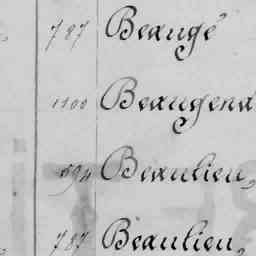 787 Beaugé
1100 Beaugend
594 Beaulieu,
787 Beaulieu,